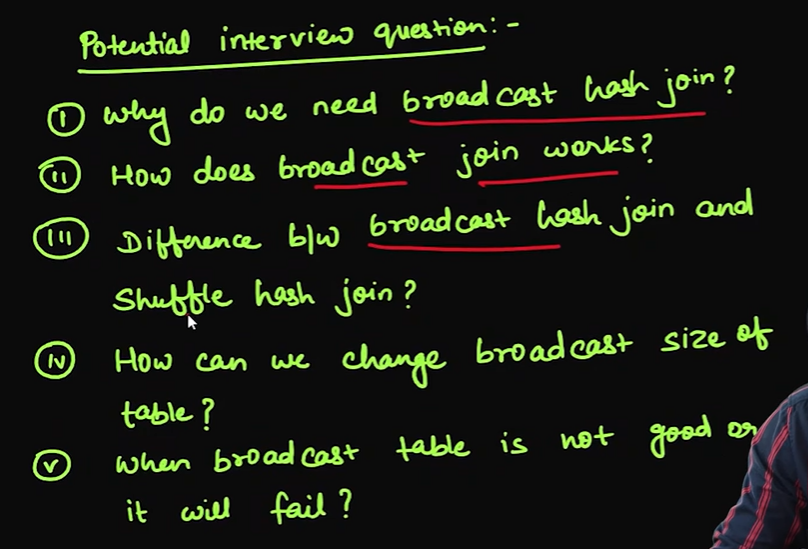 Potential interview question:-
(I) Why do we need broadcast hash join?
(II) How does broadcast join works?
(III) Difference b/w broadcast hash join and
Shuffle hash join?
(IV) How can we change broadcast size of
table?
(V) When broadcast table is not good or
it will fail?